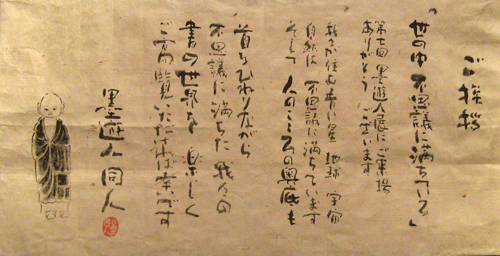 ご挨拶
「世の中 不思議に満ちている」
第七回 墨遊人展にご来場
ありがとうございます
我々が住む青い星 地球 宇宙
自然は 不思議に満ちています
そして 人のこころの奥底も
首をひねりながら
不思議に満ちた 我々の
書の世界を 楽しく
ご高覧いただければ幸いです
墨遊人 同人